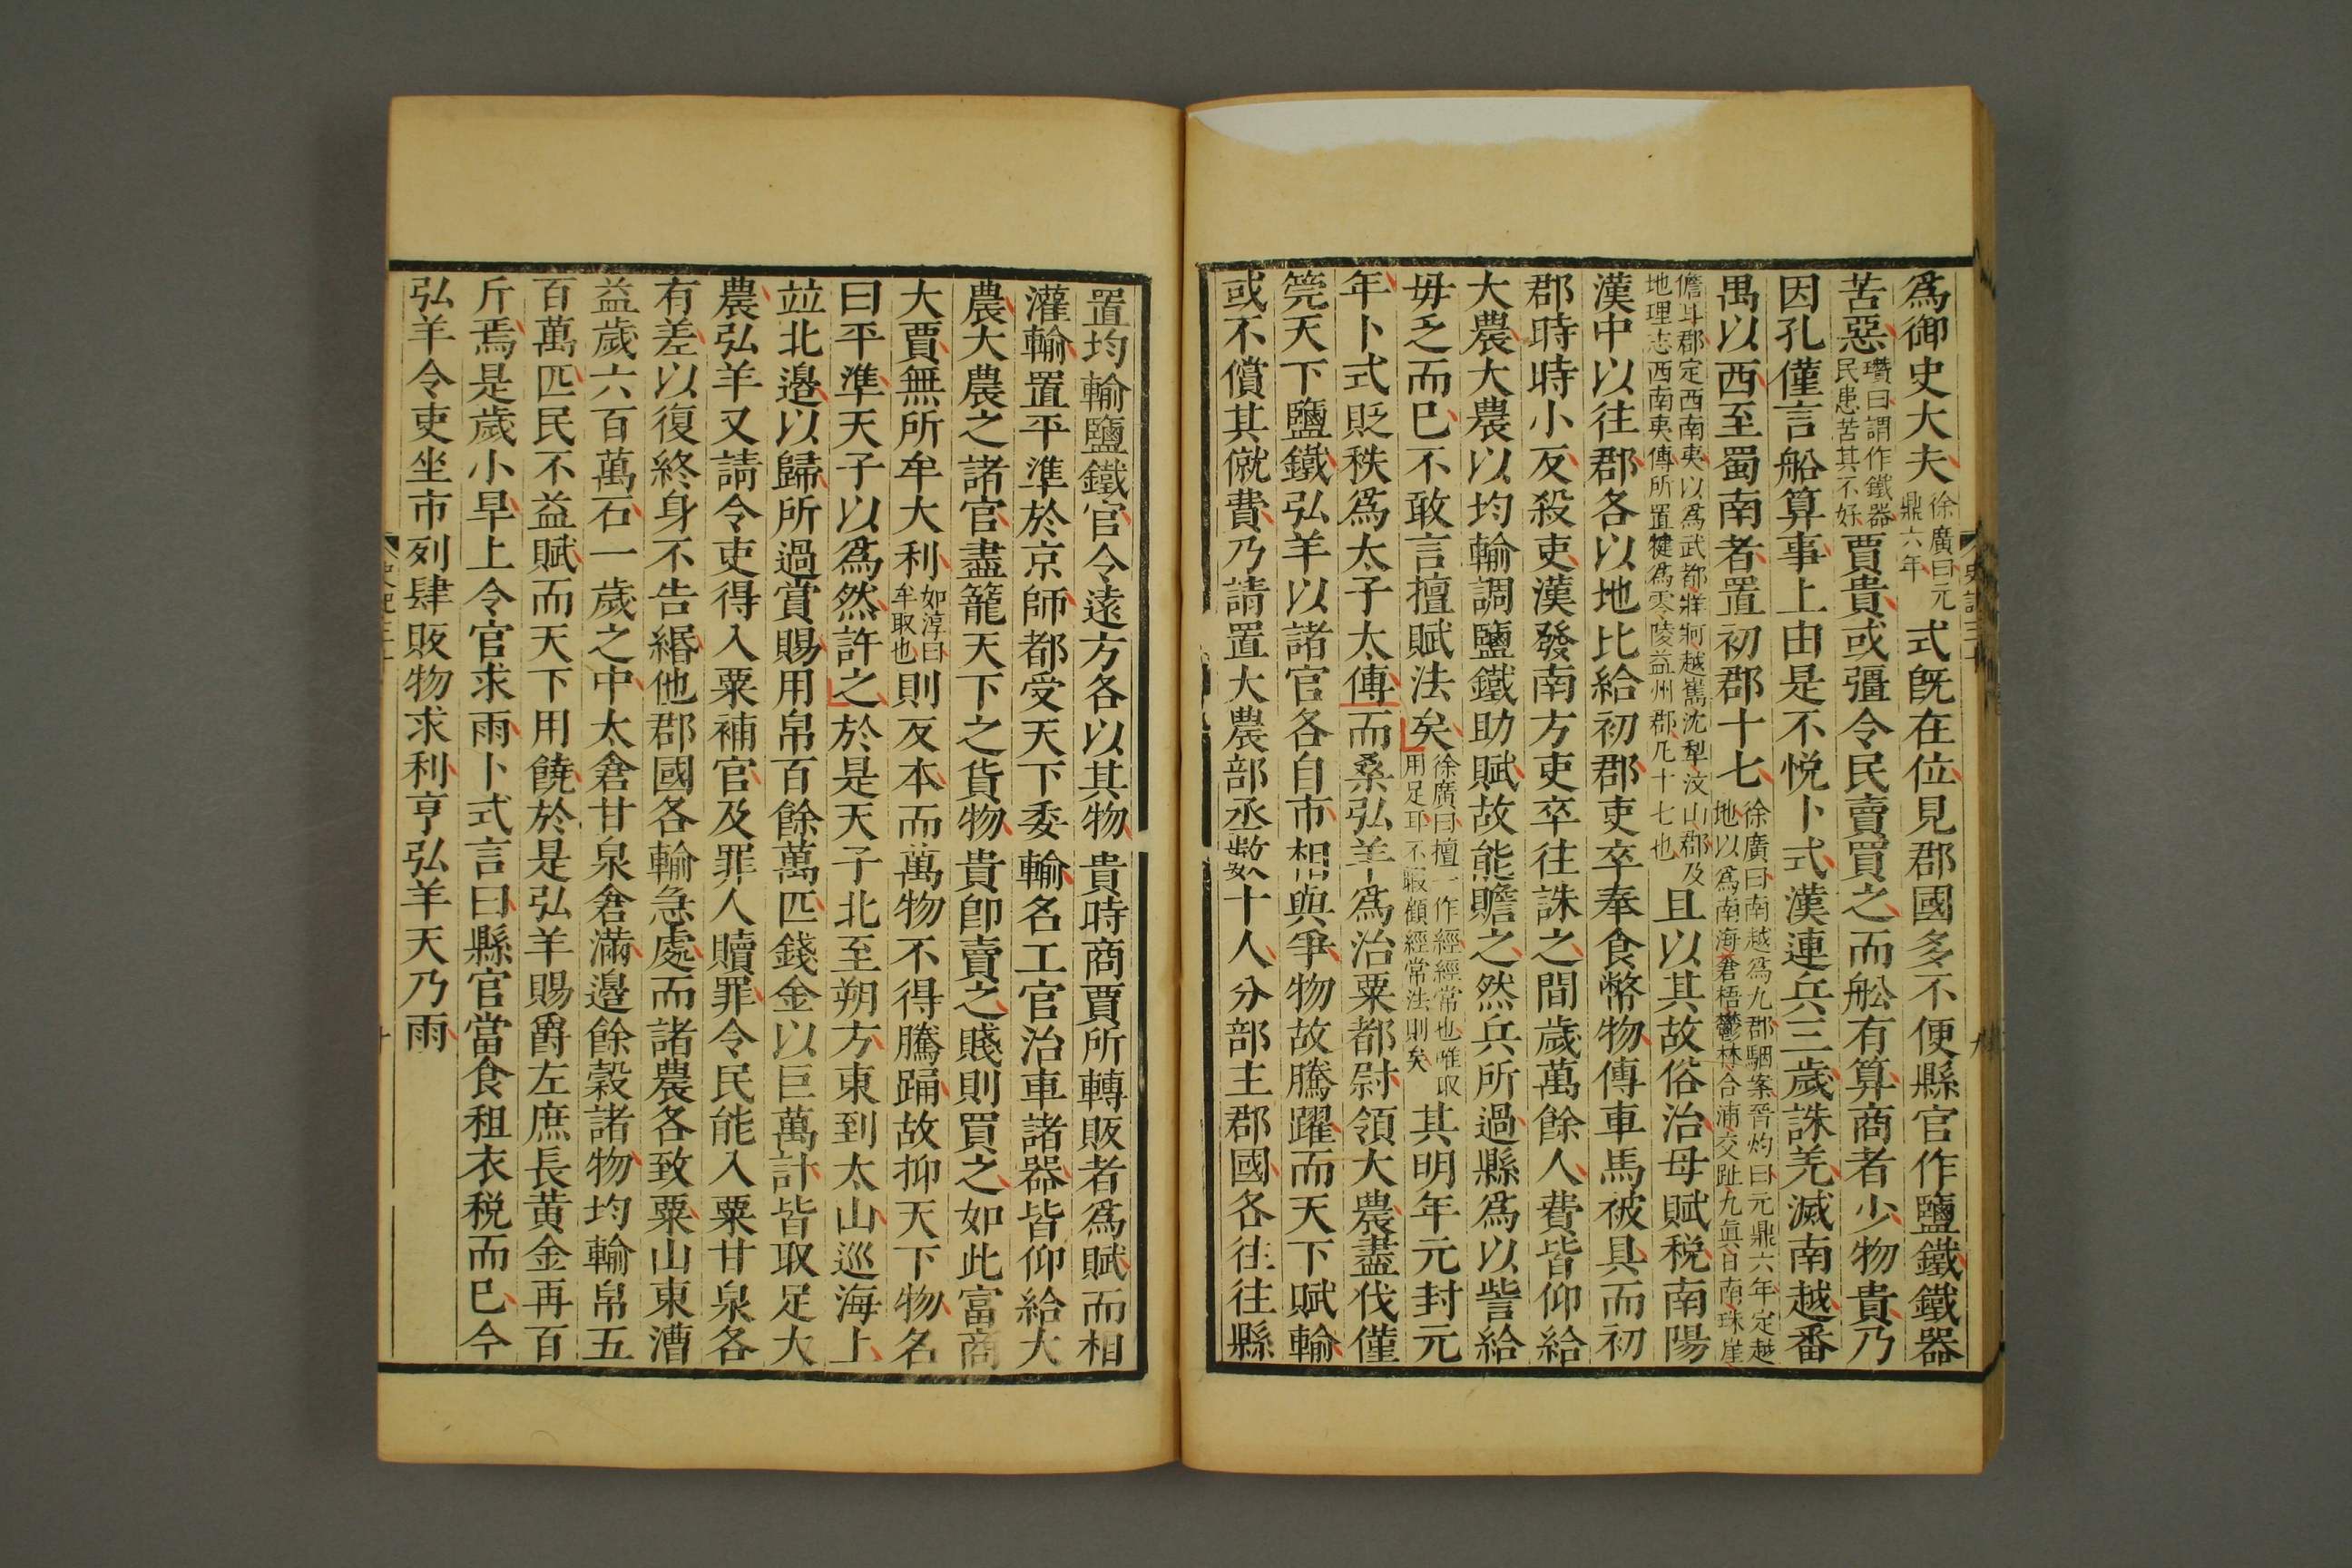 爲御史大夫徐廣曰元鼎六年式旣在位見郡國多不便縣官作鹽鐵鐵器
苦惡瓚曰謂作鐵器民患苦其不好賈貴或彊令民賣買之而舩有算商者少物貴乃
因孔僅言船算事上由是不悅卜式漢連兵三歲誅羌滅南越番
禺以西至蜀南者置初郡十七徐廣曰南越爲九郡駰案晉灼曰元鼎六年定越地以爲南海蒼梧鬱林合浦交趾九眞日南珠崖
儋耳郡定西南夷以爲武都牂牁越嶲沈犁汶山郡及地理志西南夷傳所置犍爲零陵益州郡凡十七也且以其故俗治母賦稅南陽
漢中以往郡各以地比給初郡吏卒奉食幣物傳車馬被具而初
郡時時小反殺吏漢發南方吏卒往誅之間歲萬餘人費皆仰給
大農大農以均輸調鹽鐵助賦故能贍之然兵所過縣爲以訾給
毋乏而已不敢言擅賦法矣徐廣曰擅一作經經常也唯取用足耳不暇顧經常法則矣其明年元封元
年卜式貶秩爲太子太傅而桑弘羊爲治粟都尉領大農盡伐僅
筦天下鹽鐵弘羊以諸官各自市相與爭物故騰躍而天下賦輸
或不償其僦費乃請置大農部丞數十人分部主郡國各往往縣
置均輸鹽鐵官令遠方各以其物貴時商賈所轉販者爲賦而相
灌輸置平準於京師都受天下委輸名工官治車諸器皆仰給大
農大農之諸官盡籠天下之貨物貴卽賣之賤則買之如此富商
大賈無所牟大利如淳曰牟取也則反本而萬物不得騰踊故抑天下物名
曰平準天子以爲然許之於是天子北至朔方東到太山巡海上
竝北邊以歸所過賞賜用帛百餘萬匹錢金以巨萬計皆取足大
農弘羊又請令吏得入粟補官及罪人贖罪令民能入粟甘泉各
有差以復終身不告緡他郡國各輸急處而諸農各致粟山東漕
益歲六百萬石一歲之中太倉甘泉倉滿邊餘穀諸物均輸帛五
百萬匹民不益賦而天下用饒於是弘羊賜爵左庶長黃金再百
斤焉是歲小旱上令官求雨卜式言曰縣官當食租衣税而已今
弘羊令吏坐市列肆販物求利亨弘羊天乃雨